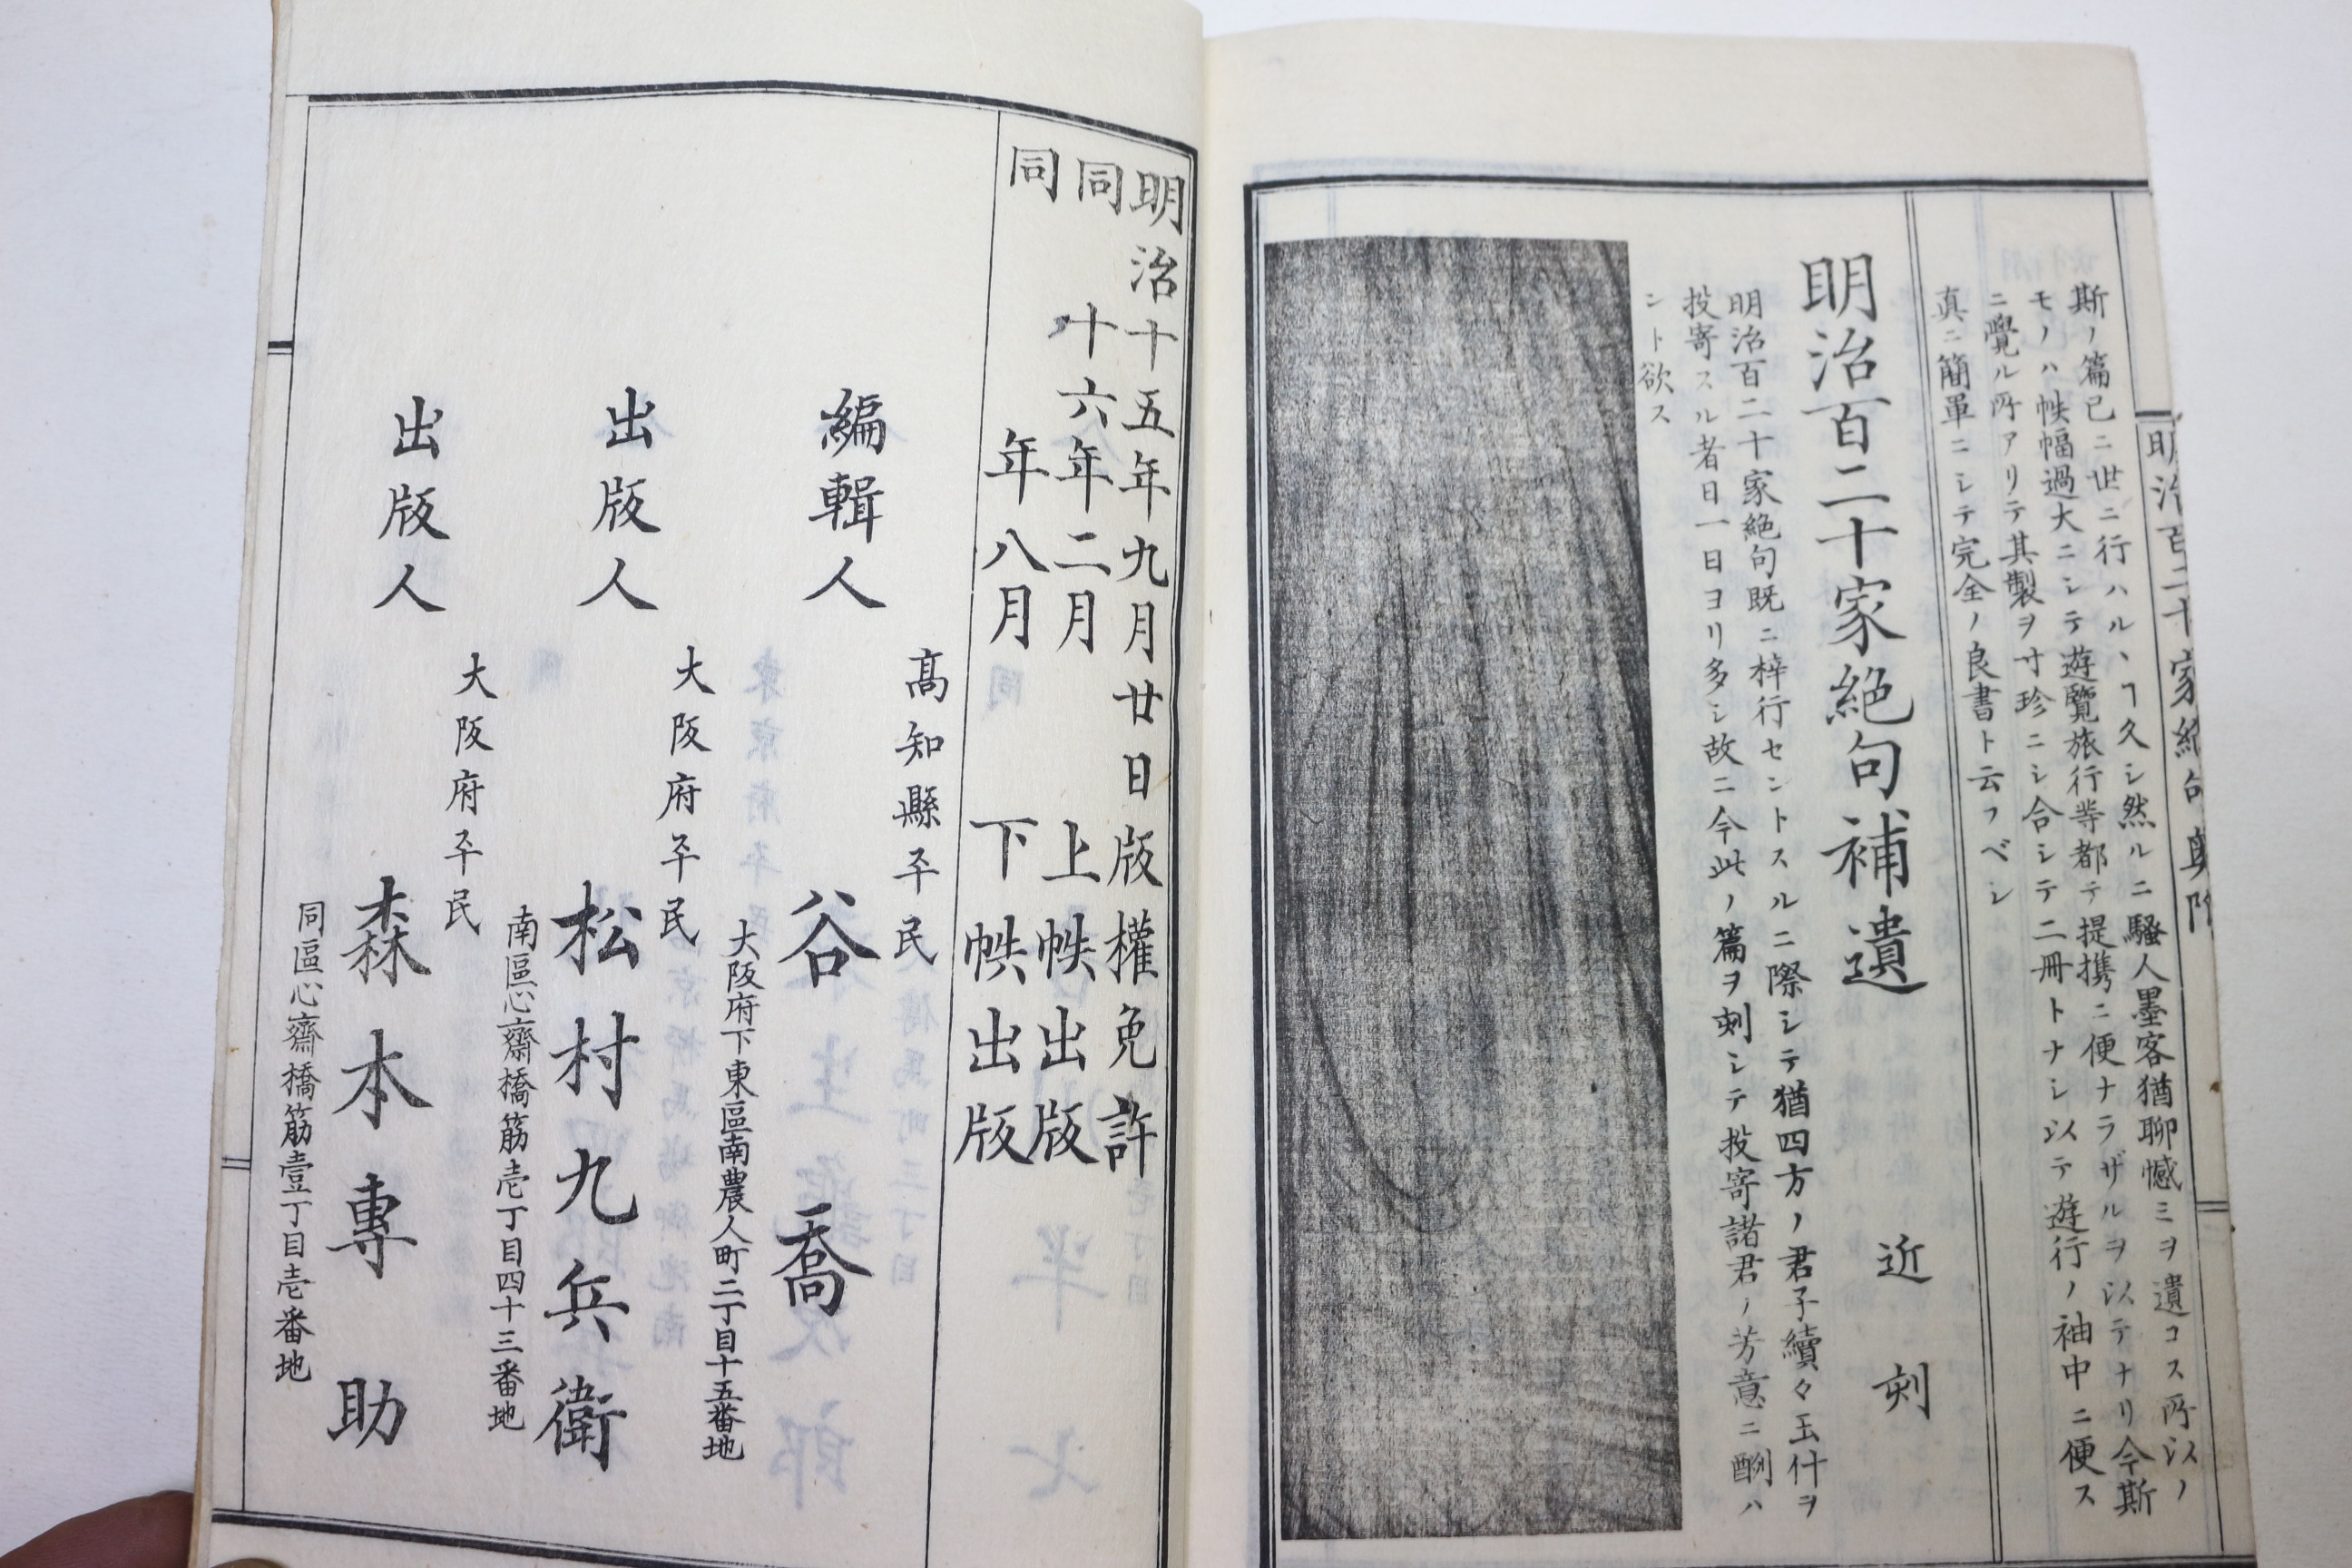 斯ノ篇已ニ世ニ行ハル丶ヿ久シ然ルニ騷人墨客猶聊憾ミヲ遺コス所以ノ
モノハ帙幅過大ニシテ遊覽旅行等都テ提携ニ便ナラザルヲ以テナリ今斯
ニ覺ル所アリテ其製ヲ寸珍ニシ合シテ二冊トナシ以テ遊行ノ袖中ニ便ス
真ニ簡單ニシテ完全ノ良書ト云フベシ
明治百二十家絶句補遺　近刻
明治百二十家絶句既ニ梓行セントスルニ際シテ猶四方ノ君子續々玉什ヲ
投寄スル者日一日ヨリ多シ故ニ今此ノ篇ヲ刻シテ投寄諸君ノ芳意ニ酬ハ
ント欲ス
明治十五年九月廿日版權免許
同　十六年二月　上帙出版
同　年八月　下帙出版
高知縣平民
編輯人　谷喬
大阪府下東區南農人町二丁目十五番地
大阪府平民
出版人　松村九兵衛
南區心齋橋筋壱丁目四十三番地
大阪府平民
出版人　森本專助
同區心齋橋筋壹丁目壱番地